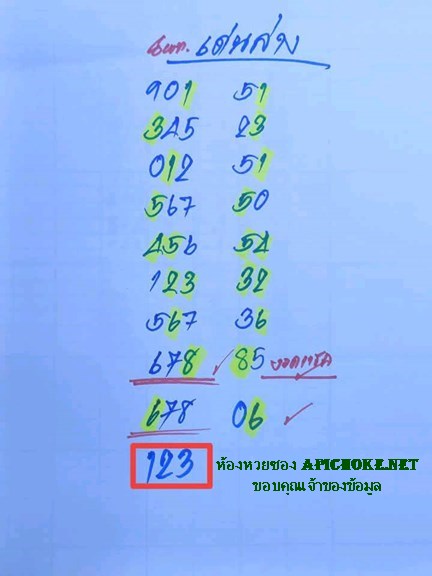 เด่นล่าง
901 51
345 23
012 51
567 50
456 54
123 32
567 36
678 85
678 06
123 ห้องหวยซอง APICHOKE.NET
ขอบคุณเจ้าของข้อมูล